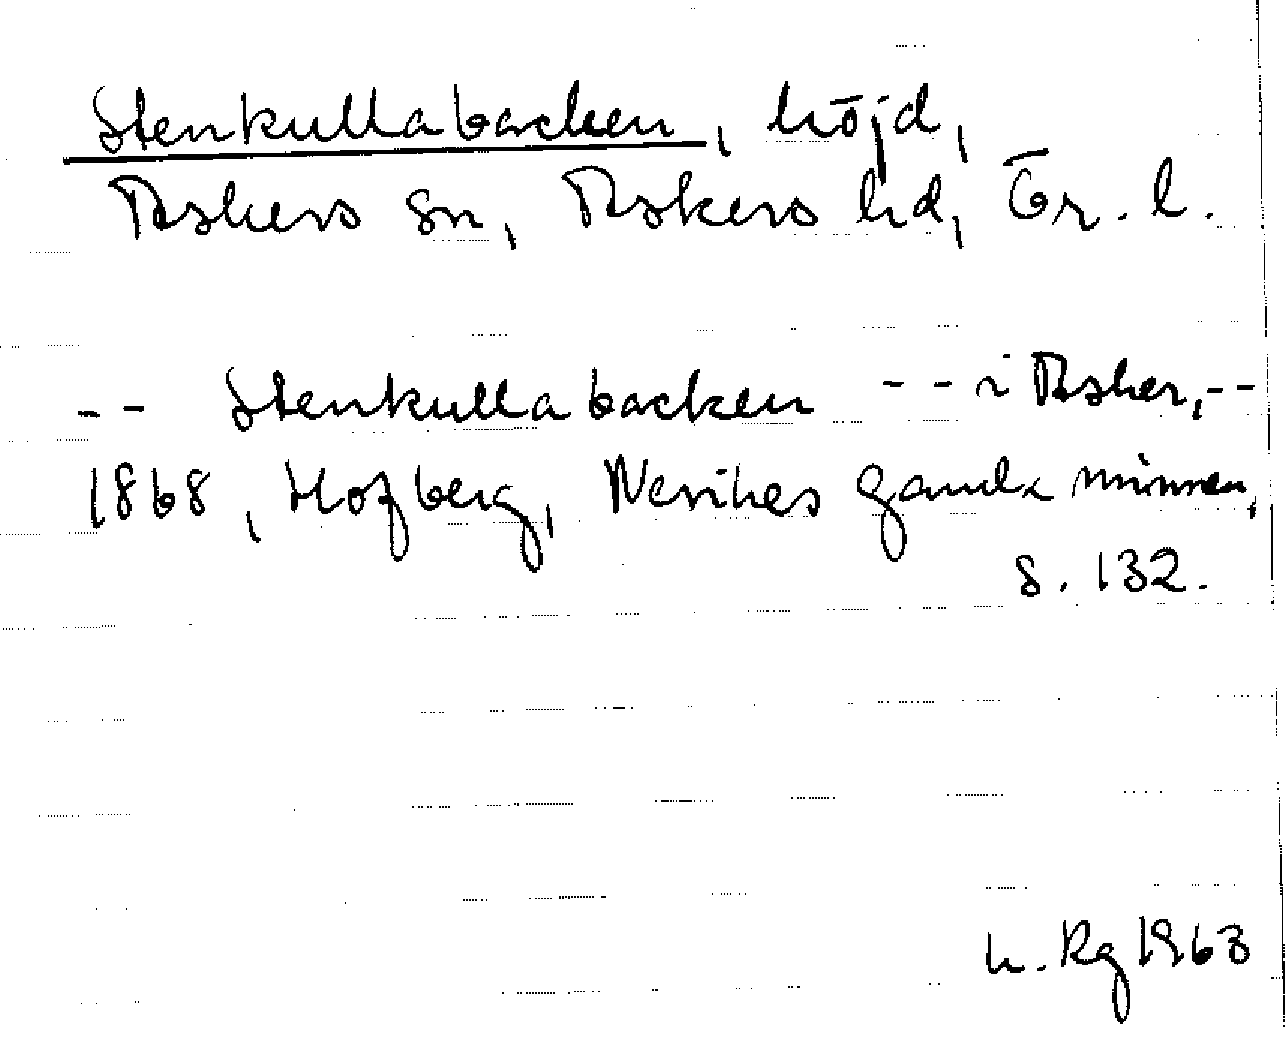 Stenkullabacken, höjd,
Askers sn, Askers hd, Ör. l.
-- Stenkullabacken -- i Asker, --
1868, Hofberg, Nerikes gamla minnen,
s. 132.
h. Rg 1963